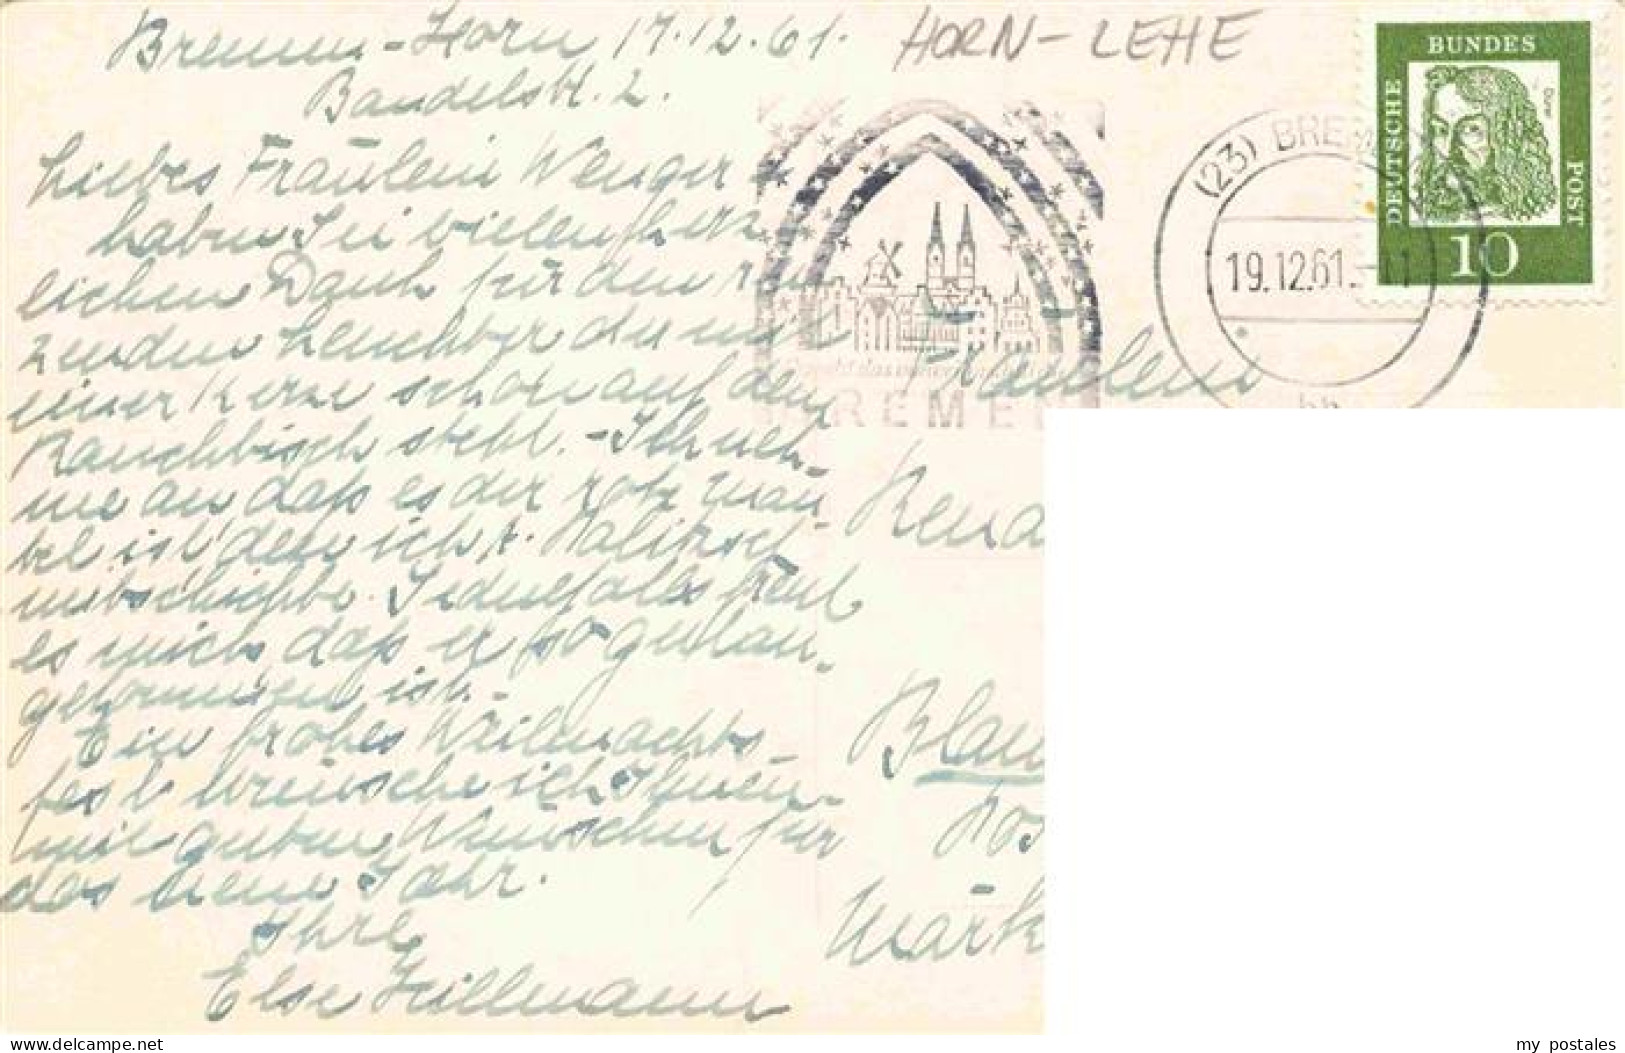 Bremen-Horn 17.12.61.
HORN-LEHE
Bandelstr. 2.
Liebes Fräulein Wenger
haben Sie vielen herz
lichen Dank für den rei
zenden Leuchter der mit
einer Kerze schon auf dem
Rauchtisch steht. - Ich neh-
me an daß es der rote
ist den ich
mitschickte. Jedenfalls freut
es mich, daß er so gut an-
gekommen ist. -
Ein frohes Weihnachts-
fest wünsche ich Ihnen
mit guten Wünschen für
das neue Jahr.
Ihre
Else Hillmann
Fräulein
Rena
Blau
Märk
BREMEN
(23) BREM
19.12.61.-11
DEUTSCHE
BUNDES
POST
Dürer
10
my postales